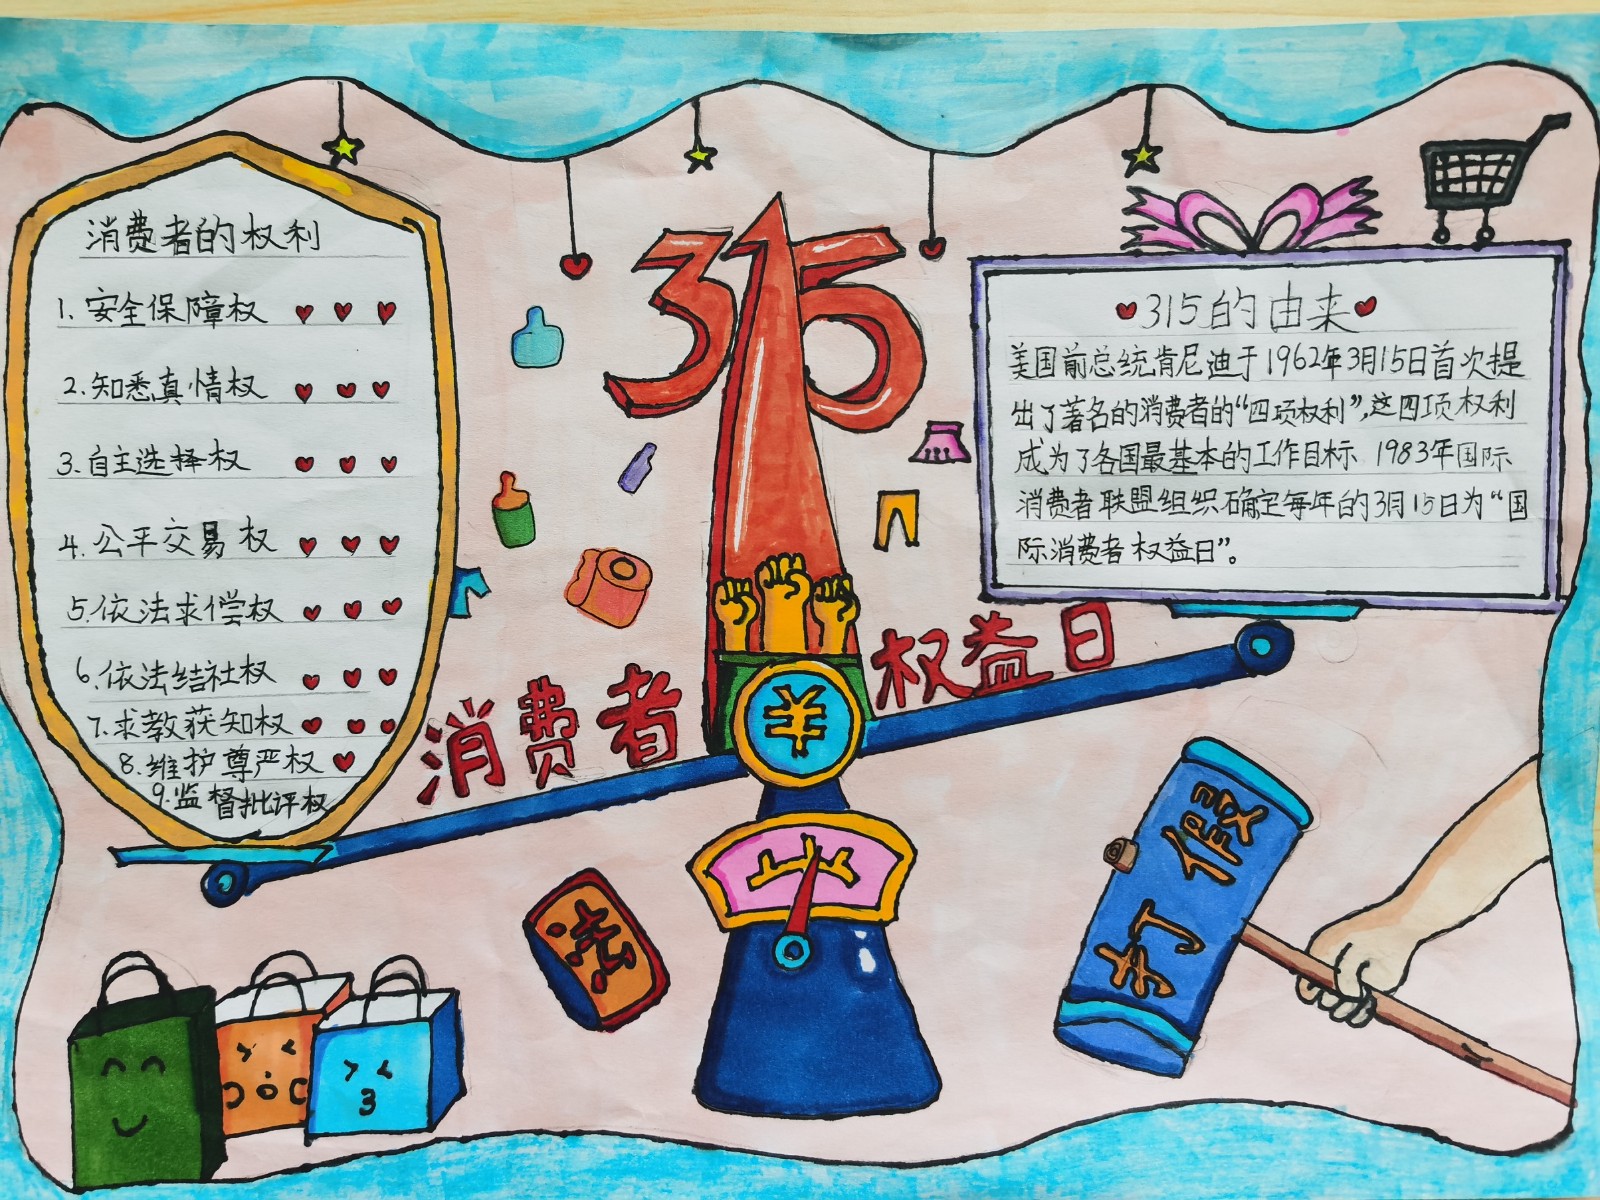 消费者的权利
1.安全保障权
2.知悉真情权
3.自主选择权
4.公平交易权
5.依法求偿权
6.依法结社权
7.求教获知权
8.维护尊严权
9.监督批评权
315
消费者 权益日
¥
315的由来
美国前总统肯尼迪于1962年3月15日首次提
出了著名的消费者的“四项权利”,这四项权利
成为了各国最基本的工作目标 1983年国际
消费者联盟组织确定每年的3月15日为“国
际消费者权益日”。
法
打假